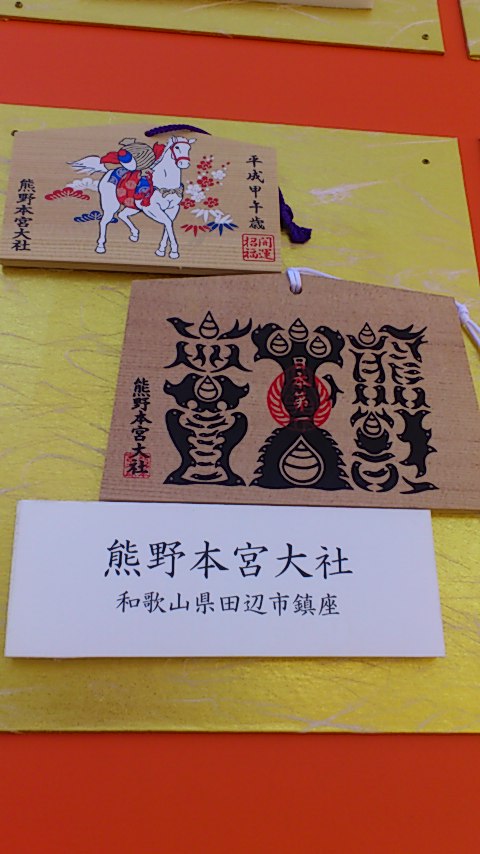 平成甲午歳
開運
招福
熊野本宮大社
日本第一
熊野本宮大社
熊野本宮大社
和歌山県田辺市鎮座